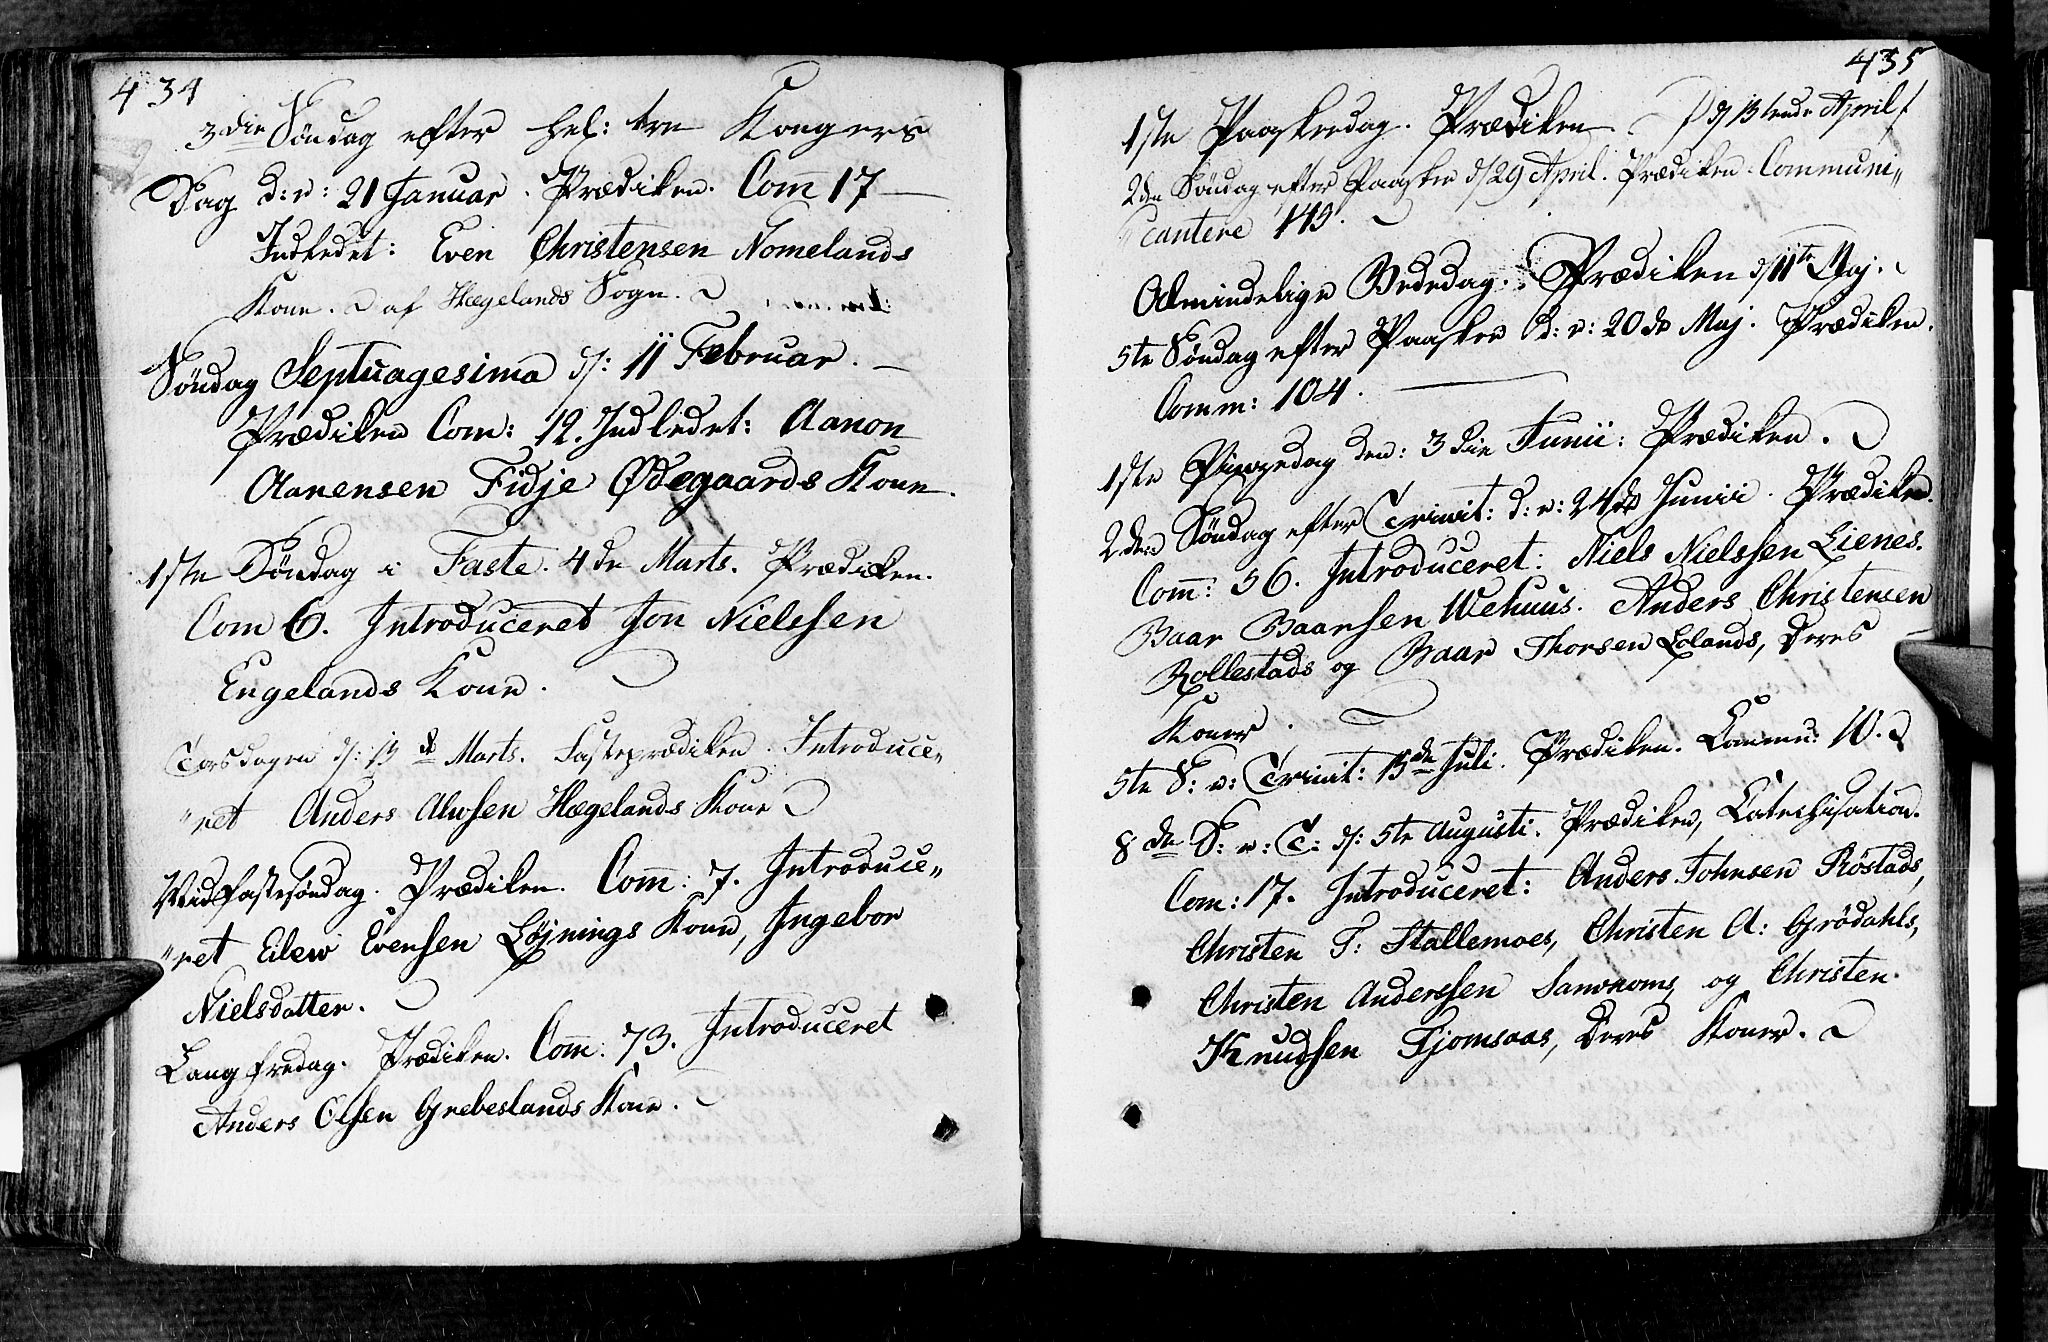 434
3die Søndag efter Hel: tre Kongers
Dag d: v: 21 Januar. Prædiken. Com̄ 17 —
Indledet: Even Christensen Nomelands
Kone. af Hægelands Sogn.
Søndag Septuagesima d: 11 Februar. —
Prædiken Com: 12. Indledet: Aanon
Aanensen Fidje Ødegaards Kone.
1ste Søndag i Faste. 4de Marts. Prædiken.
Com 6. Introduceret Jon Nielssen
Engelands Kone.
Torsdagen d: Marts. Fasteprædiken. Introduce„
„ret Anders Alwsen Hægelands Kone
Midfastesøndag. Prædiken. Com̄: 7. Introduce„
„ret Eilew Evensen Løjnings Kone, Ingebor
Nielsdatter.
Langfredag. Prædiken. Com̄: 73. Introduceret
Anders Olsen Grebeslands Kone.
435
1ste Paaskedag. Prædiken. d 15tende April
2den Søndag efter Paaske d 29 April. Prædiken. Communi„
„cantere 149.
Almindelige Bededag. Prædiken d 11te Maj.
5te Søndag efter Paaske d: v: 20de Maj. Prædiken.
Comm: 104.
1ste Pingsedag den: 3die Junii: Prædiken.
2den Søndag efter Trinit: d: v: 24de Junii. Prædiken.
Com̄: 56. Introduceret: Niels Nielssen Lienes.
Baar Baarsen Wehuus. Anders Christensen
Rollestads og Baar Thorsen Lolands, deres
Koner.
5te S: e: Trinit: 15de Juli. Prædiken. Commu: 10.
8de S: e: T: d: 5te Augusti. Prædiken, Catechisation.
Com: 17. Introduceret: Anders Johnsen Røstads,
Christen T: Stallemoes, Christen A: Grødahls,
Christen Anderssen og Christen
Knudsen Fjomsaas, deres Koner.